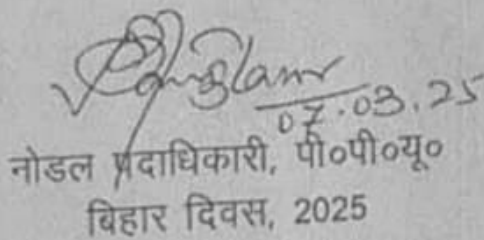 07.03.25
नोडल पदाधिकारी, पी०पी०यू०
बिहार दिवस, 2025